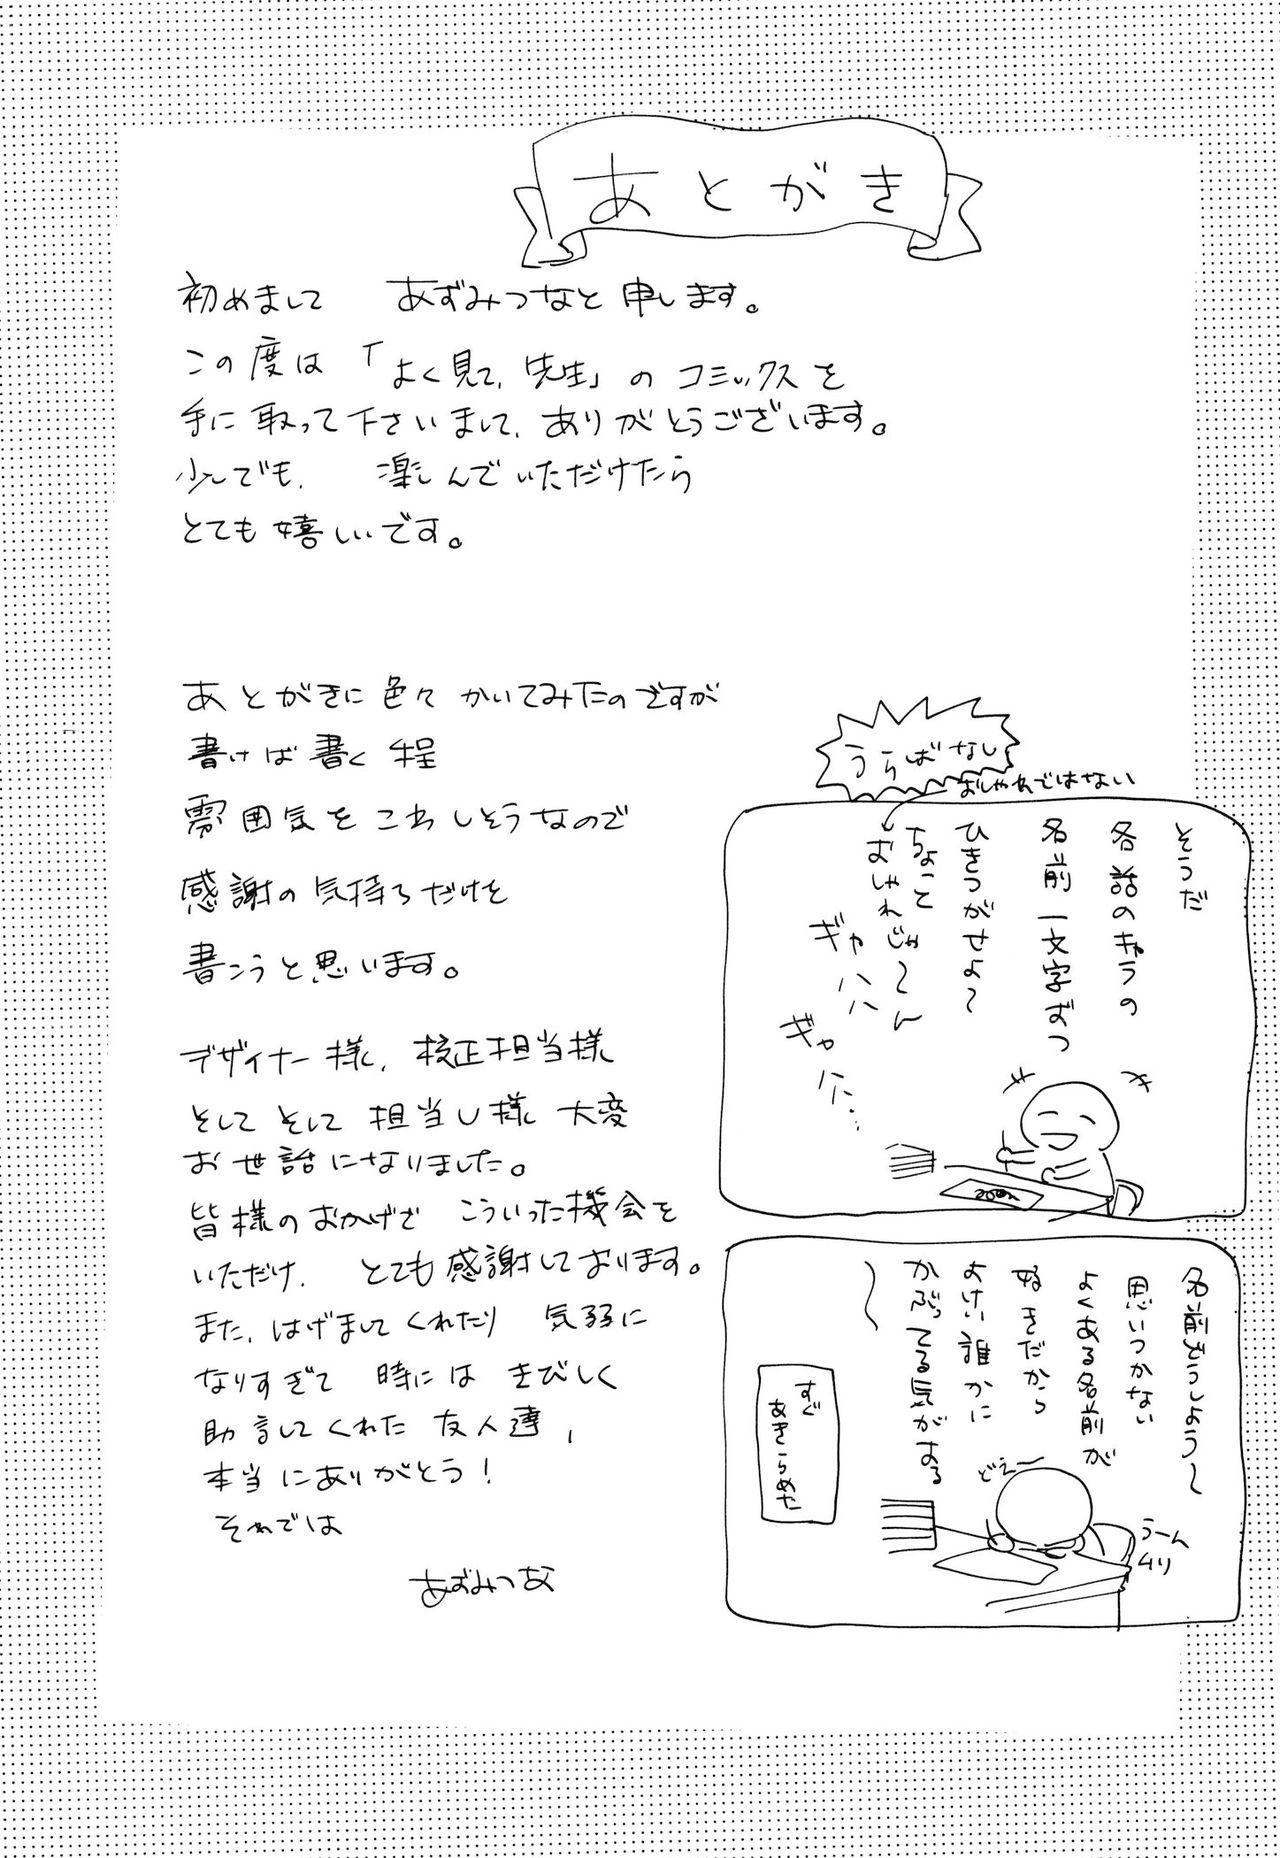 あとがき
初めまして あずみつなと申します。
この度は「よく見て、先生」のコミックスを
手に取って下さいまして、ありがとうございます。
少しでも、楽しんでいただけたら
とても嬉しいです。
あとがきに色々かいてみたのですが
書けば書く程
雰囲気をこわしそうなので
感謝の気持ちだけを
書こうと思います。
デザイナー様、校正担当様
そして そして 担当U様 大変
お世話になりました。
皆様のおかげで こういった機会を
いただけ、とても感謝しております。
また、はげましてくれたり 気弱に
なりすぎて 時には きびしく
助言してくれた 友人達、
本当にありがとう!
それでは
あずみつな
うらばなし
おしゃれではない
そうだ
各話のキャラの
名前一文字ずつ
ひきつがせよ〜
ちょっと
おしゃれじゃ〜ん
ギャハハハ
ギャハハ…
名前どうしよう〜
思いつかない
よくある名前が
好きだから
よけい誰かに
かぶってる気がある
〜
どえ〜
うーん
ムリ
すぐ
あきらめた